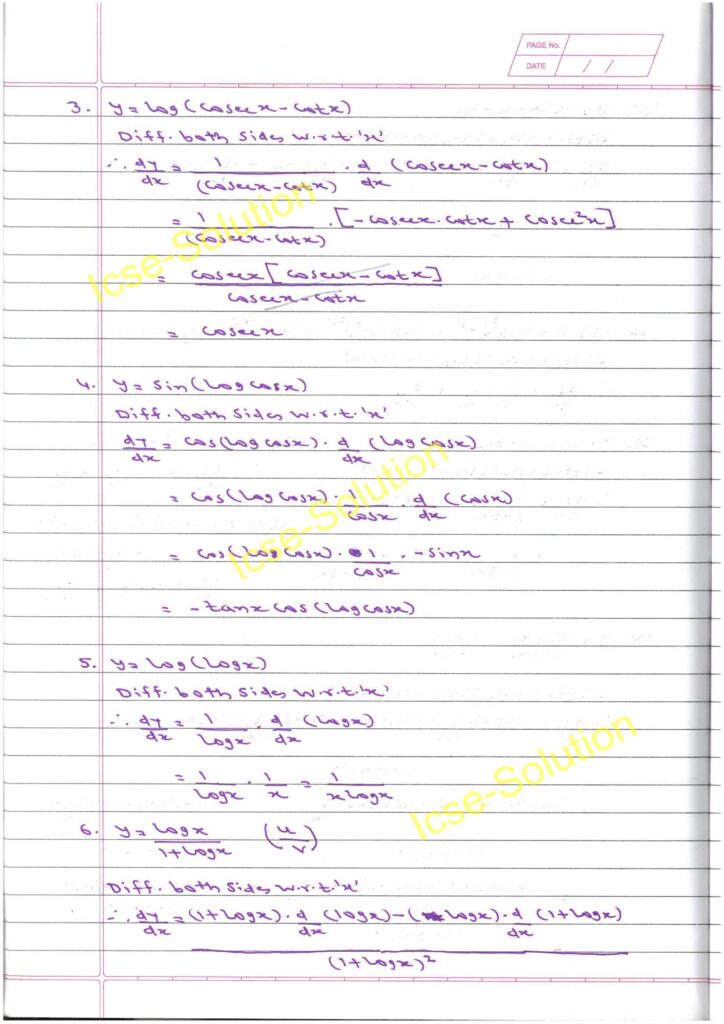 PAGE No.
DATE / /
3. y = log(cosecx - cotx)
Diff. both sides w.r.t. 'x'
∴ dy/dx = 1/(cosecx - cotx) . d/dx (cosecx - cotx)
= 1/(cosecx - cotx) . [-cosecx . cotx + cosec²x]
= cosecx [cosecx - cotx] / cosecx - cotx
= cosecx
4. y = sin(log cosx)
Diff. both sides w.r.t. 'x'
dy/dx = cos(log cosx) . d/dx (log cosx)
= cos(log cosx) . 1/cosx . d/dx (cosx)
= cos(log cosx) . 1/cosx . -sinx
= -tanx cos(log cosx)
5. y = log(logx)
Diff. both sides w.r.t. 'x'
∴ dy/dx = 1/logx . d/dx (logx)
= 1/logx . 1/x = 1/xlogx
6. y = logx/1+logx (u/v)
Diff. both sides w.r.t. 'x'
∴ dy/dx = (1+logx) . d/dx (logx) - (logx) . d/dx (1+logx) / (1+logx)²
Icse-Solution
Icse-Solution
Icse-Solution